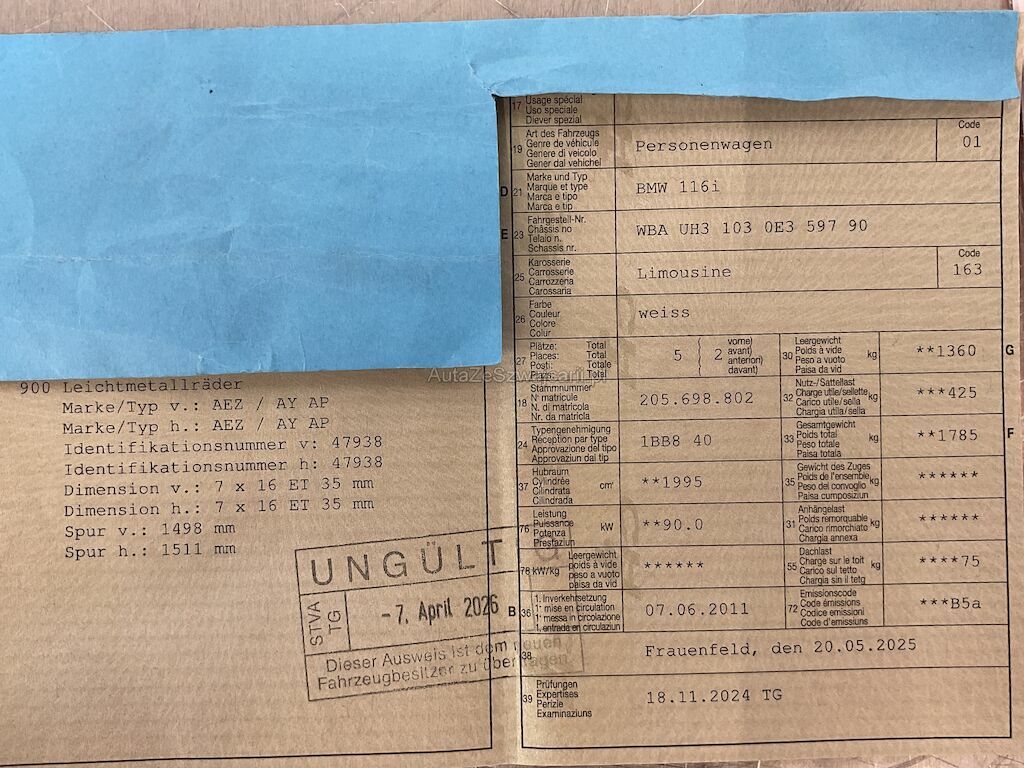 900 Leichtmetallräder
Marke/Typ v.: AEZ / AY AP
Marke/Typ h.: AEZ / AY AP
Identifikationsnummer v: 47938
Identifikationsnummer h: 47938
Dimension v.: 7 x 16 ET 35 mm
Dimension h.: 7 x 16 ET 35 mm
Spur v.: 1498 mm
Spur h.: 1511 mm
UNGÜLTIG
STVA
TG
-7. April 2026
Dieser Ausweis ist dem neuen
Fahrzeugbesitzer zu übertragen.
17
Usage spécial
Uso speciale
Diever spezial
19
Art des Fahrzeugs
Genre de véhicule
Genere di veicolo
Gener dal vehichel
Personenwagen
Code
01
D 21
Marke und Typ
Marque et type
Marca e tipo
Marca e tip
BMW 116i
E 23
Fahrgestell-Nr.
Châssis no
Telaio n.
Schassis nr.
WBA UH3 103 0E3 597 90
25
Karosserie
Carrosserie
Carrozzeria
Carossaria
Limousine
Code
163
26
Farbe
Couleur
Colore
Colur
weiss
27
Plätze: Total
Places: Total
Posti: Totale
Total
5 ( 2
vorne)
avant)
anteriori)
davant)
30
Leergewicht
Poids à vide
Peso a vuoto
Paisa da vid
kg
**1360
G
18
Stammnummer
N° matricule
N. di matricola
Nr. da matricla
205.698.802
32
Nutz-/Sattellast
Charge utile/sellette
Carico utile/sella
Chargia utila/sella
kg
***425
24
Typengenehmigung
Réception par type
Approvazione del tipo
Approvaziun dal tip
1BB8 40
33
Gesamtgewicht
Poids total
Peso totale
Paisa totala
kg
**1785
F
37
Hubraum
Cylindrée
Cilindrata
Cilindrada
cm³
**1995
35
Gewicht des Zuges
Poids de l'ensemble
Peso del convoglio
Paisa cumposiziun
kg
******
76
Leistung
Puissance
Potenza
Prestaziun
kW
**90.0
31
Anhängelast
Poids remorquable
Carico rimorchiato
Chargia annexa
kg
******
78 kW/kg
Leergewicht
poids à vide
peso a vuoto
paisa da vid
******
55
Dachlast
Charge sur le toit
Carico sul tetto
Chargia sin il tetg
kg
****75
B 36
1. Inverkehrsetzung
1re mise en circulation
1a messa in circolazione
1. entrada en circulaziun
07.06.2011
72
Emissionscode
Code émissions
Codice emissioni
Code d'emissiuns
***B5a
38
Frauenfeld, den 20.05.2025
39
Prüfungen
Expertises
Perizie
Examinaziuns
18.11.2024 TG